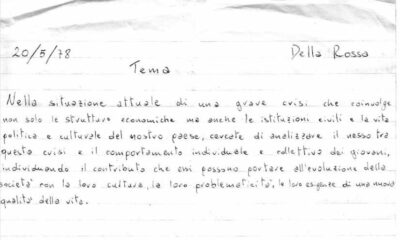 20/5/78
Della Rossa
Tema
Nella situazione attuale di una grave crisi che coinvolge
non solo le strutture economiche ma anche le istituzioni civili e la vita
politica e culturale del nostro paese, cercate di analizzare il nesso tra
questa crisi e il comportamento individuale e collettivo dei giovani,
individuando il contributo che essi possono portare all'evoluzione della
società con la loro cultura, la loro problematicità, le loro esigenze di una nuova
qualità della vita.